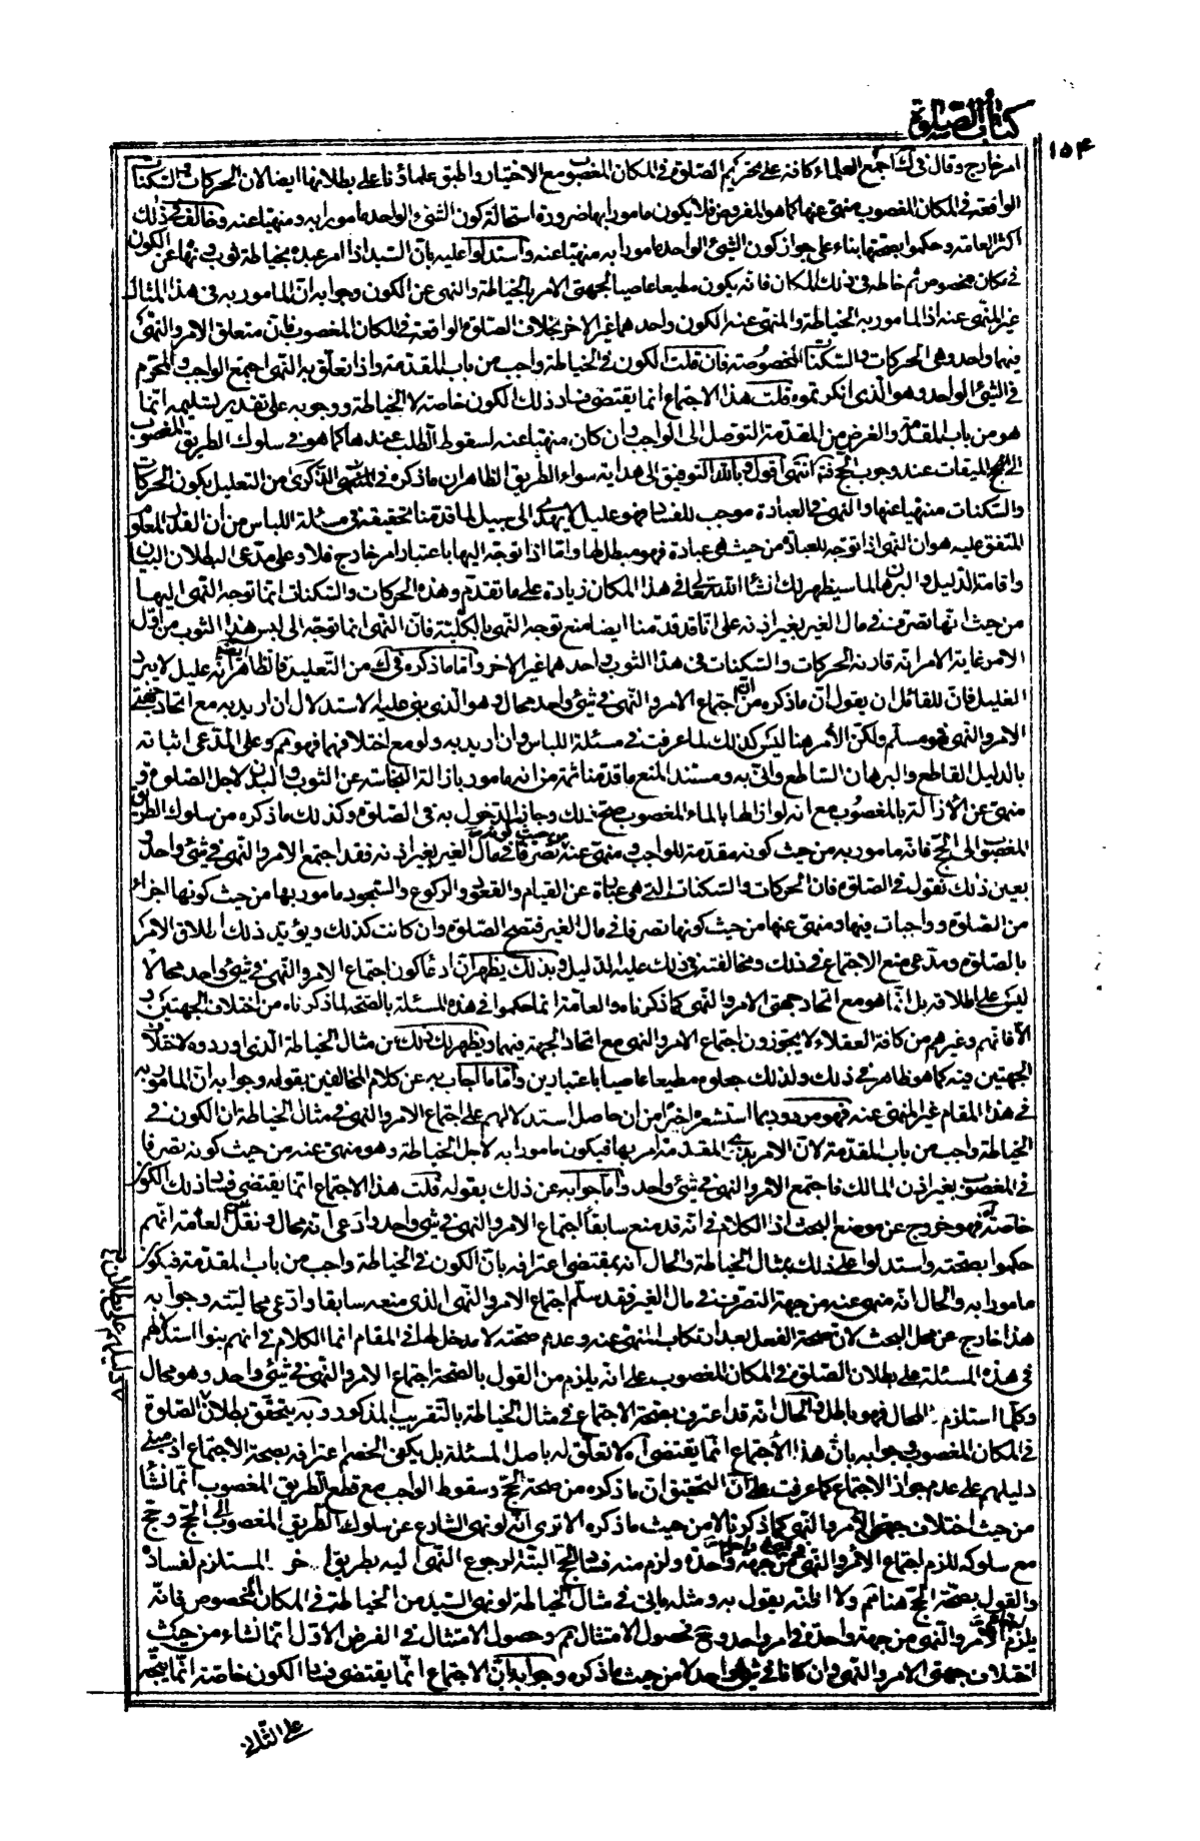 كتاب الصلوة
١٥٤
امر خارج وقال في ك اجمع العلماء كافة على تحريم الصلوة في المكان المغصوب مع الاختيار واطبق علماؤنا على بطلانها ايضا لان الحركات والسكنات
الواقعة في المكان المغصوب منهى عنها كما هو المفروض فلا يكون مامورا بها ضرورة استحالة كون الشئ الواحد مامورا به ومنهيا عنه وخالف في ذلك
اكثر العامة وحكموا بصحتها بناء على جواز كون الشئ الواحد مامورا به منهيا عنه واستدلوا عليه بان السيد اذا امر عبده بخياطة ثوب ونهاه عن الكون
في مكان مخصوص ثم خاطه في ذلك المكان فانه يكون مطيعا عاصيا لجهتى الامر بالخياطة والنهى عن الكون وجوابه ان المامور به في هذا المثال
غير المنهى عنه اذ المامور به الخياطة والمنهى عنه الكون واحدهما غير الاخر بخلاف الصلوة الواقعة في المكان المغصوب فان متعلق الامر والنهى
فيها واحد وهى الحركات والسكنات المخصوصة فان قلت الكون في الخياطة واجب من باب المقدمة واذا تعلق به النهى اجتمع الواجب والمحرم
في الشئ الواحد وهو الذى انكرتموه قلت هذا الاجتماع انما يقتضى فساد ذلك الكون خاصة لا الخياطة ووجوبه على تقدير تسليمه انما
هو من باب المقدمة والغرض من المقدمة التوصل الى الواجب وان كان منهيا عنه لسقوط الطلب عندها كما هو في سلوك الطريق المغصوب
الى الميقات عند وجوب الحج فتم انتهى اقول وبالله التوفيق الى هداية سواء الطريق الظاهر ان ما ذكره في المنتهى والذكرى من التعليل بكون الحركات
والسكنات منهيا عنها والنهى في العبادة موجب للفساد فهو عليل لا يهتدى الى سبيل لما قدمنا تحقيقه في مسئلة اللباس من ان القدر المعلوم
المتفق عليه هو ان النهى اذا توجه للعبادة من حيث هى عبادة فهو مبطل لها واما اذا توجه اليها باعتبار امر خارج فلا وعلى مدعى البطلان البيان
واقامة الدليل والبرهان لما سيظهر لك انشاء الله تعالى في هذا المكان زيادة على ما تقدم وهذه الحركات والسكنات انما توجه النهى اليها
من حيث انها تصرف في مال الغير بغير اذنه على انا قد قدمنا ايضا منع توجه النهى بالكلية فان النهى انما توجه الى لبس هذا الثوب من اول
الامر غاية الامر انه قارنه الحركات والسكنات في هذا الثوب واحدهما غير الاخر واما ما ذكره في ك من التعليل فالظاهر ايضا انه عليل لا يبرد
الغليل فان للقائل ان يقول ان ما ذكره من ان اجتماع الامر والنهى في شئ واحد محال وهو الذى بنى عليه الاستدلال ان اريد به مع اتحاد جهتى
الامر والنهى فهو مسلم ولكن الأمر هنا ليس كذلك لما عرفت في مسئلة اللباس وان اريد به ولو مع اختلافهما فهو مم وعلى المدعى اثباته
بالدليل القاطع والبرهان الساطع وانى به ومستند المنع ما قدمناه ثمة من انه مامور بازالة النجاسة عن الثوب والبدن لاجل الصلوة و
منهى عن الازالة بالمغصوب مع انه لو ازالها بالماء المغصوب صح ذلك وجاز الدخول به في الصلوة وكذلك ما ذكره من سلوك الطريق
المغصوب الى الحج فانه مامور به من حيث كونه مقدمة للواجب ومنهى عنه من حيث كونه تصرفا في مال الغير بغير اذنه فقد اجتمع الامر والنهى في شئ واحد و
بعين ذلك نقول في الصلوة فان الحركات والسكنات التى هى عبارة عن القيام والقعود والركوع والسجود مامور بها من حيث كونها اجزاء
من الصلوة وواجبات فيها ومنهى عنها من حيث كونها تصرفا في مال الغير فتصح الصلوة وان كانت كذلك ويؤيد ذلك اطلاق الامر
بالصلوة ومدعى منع الاجتماع في ذلك ومخالفته في ذلك عليه الدليل وبذلك يظهر ان ادعا كون اجتماع الامر والنهى في شئ واحد محالا
ليس على اطلاقه بل انما هو مع اتحاد جهتى الامر والنهى كما ذكرناه والعامة انما حكموا في هذه المسئلة بالصحة لما ذكرناه من اختلاف الجهتين و
الا فانهم وغيرهم من كافة العقلاء لا يجوزون اجتماع الامر والنهى مع اتحاد الجهة فيهما ويظهر لك ذلك من مثال الخياطة الذى اوردوه لاختلاف
الجهتين فيه كما هو ظاهر في ذلك ولذلك جعلوه مطيعا عاصيا باعتبارين واما ما اجاب به عن كلام المخالفين بقوله وجوابه ان المامور به
في هذا المقام غير المنهى عنه فهو مردود بما استشعره اخيرا من ان حاصل استدلالهم على اجتماع الامر والنهى في مثال الخياطة ان الكون في
الخياطة واجب من باب المقدمة لان الامر بذى المقدمة امر بها فيكون مامورا به لاجل الخياطة وهو منهى عنه من حيث كونه تصرفا
في المغصوب بغير اذن المالك فاجتمع الامر والنهى في شئ واحد واما جوابه عن ذلك بقوله قلت هذا الاجتماع انما يقتضى فساد ذلك الكون
خاصة آه فهو خروج عن موضع البحث اذ الكلام في انه قد منع سابقا اجتماع الامر والنهى في شئ واحد وادعى انه محال ونقل عن العامة انهم
حكموا بصحته واستدلوا على ذلك بمثال الخياطة والحال انه بمقتضى اعترافه بان الكون في الخياطة واجب من باب المقدمة فيكون
مامورا به والحال انه منهى عنه من جهة التصرف في مال الغير فقد سلم اجتماع الامر والنهى الذى منعه سابقا وادعى محاليته وجوابه
هذا خارج عن محل البحث لان صحة الفعل بعد ارتكاب المنهى عنه وعدم صحته لا مدخل لها في المقام انما الكلام في انهم بنوا استدلالهم
في هذه المسئلة على بطلان الصلوة في المكان المغصوب على انه يلزم من القول بالصحة اجتماع الامر والنهى في شئ واحد وهو محال
وكلما استلزم المحال فهو باطل والحال انه قد اعترف بصحة الاجتماع في مثال الخياطة بالتقريب المذكور وبه يتحقق بطلان دليلهم على بطلان الصلوة
في المكان المغصوب وجوابه بان هذا الاجتماع انما يقتضى آه لا تعلق له باصل المسئلة بل يكفى الخصم اعترافه بصحة الاجتماع اذ مبنى
دليلهم على عدم جواز الاجتماع كما عرفت على ان التحقيق ان ما ذكره من صحة الحج وسقوط الواجب مع قطع الطريق المغصوب انما نشأ
من حيث اختلاف جهتى الامر والنهى كما ذكرنا لا من حيث ما ذكره الا ترى انه لو نهى الشارع عن سلوك الطريق المغصوب الى الحج وحج
مع سلوكه للزم اجتماع الامر والنهى في شئ واحد من جهة واحدة ولزم منه فساد الحج البتة لرجوع النهى اليه بطريق آخر المستلزم لفساده
والقول بصحة الحج هنا مم ولا اظنه يقول به ومثله ياتى في مثال الخياطة لو نهى السيد من الخياطة في المكان المخصوص فانه
يلزم اجتماع الامر والنهى من جهة واحدة في امر واحد وح فحصول الامتثال مم وحصول الامتثال في الفرض الاول انما نشاء من حيث
اختلاف جهتى الامر والنهى وان كانا في شئ واحد لا من حيث ما ذكره وجوابه بان الاجتماع انما يقتضى فساد الكون خاصة انما يتجه
على الثانى